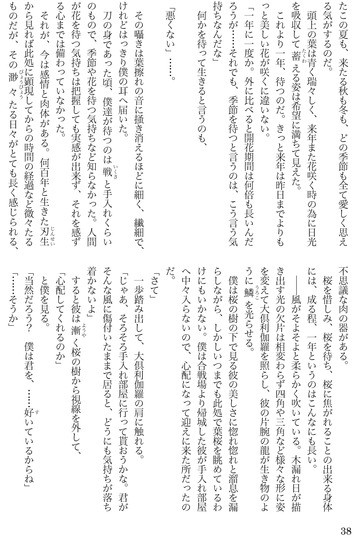 たこの夏も、来たる秋も冬も、どの季節も全て愛しく思え
る気がするのだ。
　頭上の葉は青く瑞々しく、来年また花咲く時の為に日光
を吸収して蓄える姿は希望に満ちて見えた。
　これより一年、待つのだ。きっと来年は昨日までよりも
っと美しい花が咲くに違いない。
「一年に一度か。外に比べると開花期間は何倍も長いんだ
ろうが……それでも、季節を待つと言うのは、こう言う気
持ちなんだな」
　何かを待って生きると言うのも、
「悪くない」……。
　その囁きは葉擦れの音に掻き消えるほどに細く、繊細で、
けれどはっきり僕の耳へ届いた。
　刀の身であった頃、僕達が待つのは戦と手入れくらい
のもので、季節や花を待つ気持ちなど知らなかった。人間
が花を待つ気持ちは把握しても実感が出来ず、それを感ず
る心までは備わっていなかった。
　それが、今は感情と肉体がある。何百年と生きた刃生
から見れば此処に顕現してからの時間の経過など微々たる
ものだが、その たる日々がとても長く感じられる、
不思議な肉の器がある。
　桜を惜しみ、桜を待ち、桜に焦がれることの出来る身体
には、成る程、一年というのはこんなにも長い。
　――風がそよそよと柔らかく吹いている。木漏れ日が描
き出す光の欠片は相変わらず四角や三角など様々な形に姿
を変えて大倶利伽羅を照らし、彼の片腕の龍が生き物のよ
うに鱗を光らせる。
　僕は桜の樹の下で見る彼の美しさに惚れ惚れと溜息を漏
らしながら、しかしいつまでも此処で葉桜を眺めているわ
けにもいかない。僕は合戦場より帰城した彼が手入れ部屋
へ中々入らないので、心配になって迎えに来た所だったの
だ。
「さて」
　一歩踏み出して、大倶利伽羅の肩に触れる。
「じゃあ、そろそろ手入れ部屋に行って貰おうかな。君が
そんな風に傷付いたままで居ると、どうにも気持ちが落ち
着かないよ」
　すると彼は漸く桜の樹から視線を外して、
「心配してくれるのか」
　と僕を見る。
「当然だろう？　僕は君を、……好いているからね」
「……そうか」
38